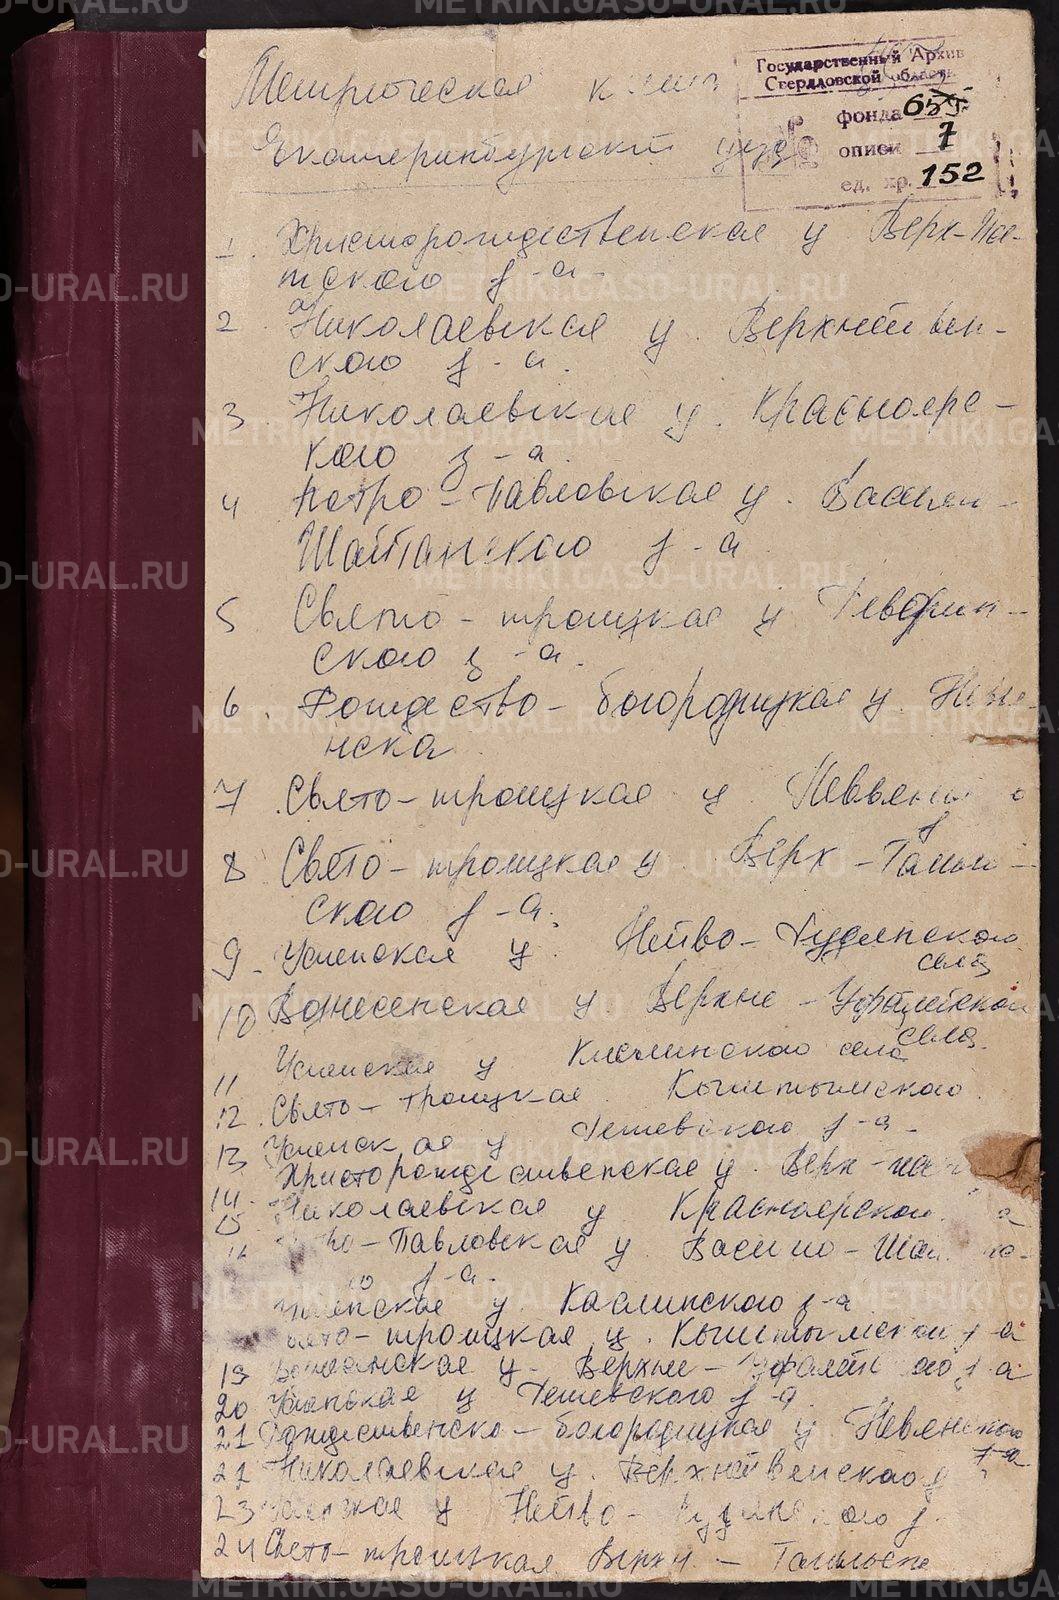 Метрическая книга
Екатеринбургский уезд
Государственный Архив
Свердловской области
фонда 6
описи 7
ед. хр. 152
1. Христорождественская ц Верх-Иса-
тского з-а
2. Николаевская ц. Верхнейвин-
ского з-а.
3. Николаевская ц. Красноярс-
кого з-а.
4 Петро-Павловская ц.
Шайтанского з-а
5. Свято-троицкая ц
ского з-а.
6. Рождество-богородицкая ц. Невья
нска
7. Свято-троицкая ц. Невьянс о
з
8. Свято-троицкая ц Верх-Тагиль-
ского з-а.
9. Успенская ц. Нейво-Рудянского
села
10 Вознесенская ц. Верхне-Уфалейского
села
11 Успенская ц Каслинского села
12. Свято-троицкая Кыштымского
13 Успенская ц з-а.
14. Христорождественская ц. Верх-исет
15 Николаевская ц Красноярского а
16 -Павловская ц Васильо-Шай
го з-а.
Успенская ц. Каслинского з-а
вято-троицкая ц. Кыштымского з-а
19 Вознесенская ц. Верхне-Уфалей ого з-а
20 Успенская ц з-а.
21 Рождественско-богородицкая ц Невьянского
з-а
22 Николаевская ц. Верхнейвенского з
23 Успенская ц Нейво-Рудянс ого з.
24 Свято-троицкая Верхн-Тагильск
METRIKI.GASO-URAL.RU